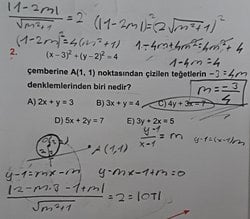 |1-2m| / √m²+1 = 2 (|1-2m|)² = (2√m²+1)²
(1-2m)² = 4(m²+1) 1-4m+4m² = 4m²+4
1-4m = 4
2.
(x-3)² + (y-2)² = 4
-3 = 4m
çemberine A(1, 1) noktasından çizilen teğetlerin
denklemlerinden biri nedir?
m = -3/4
A) 2x + y = 3 B) 3x + y = 4 C) 4y + 3x = 7
D) 5x + 2y = 7 E) 3y + 2x = 5
y-1 / x-1 = m
A(1,1)
y-1 = mx-m y-mx-1+m=0
|2-m.3-1+m| / √m²+1 = 2